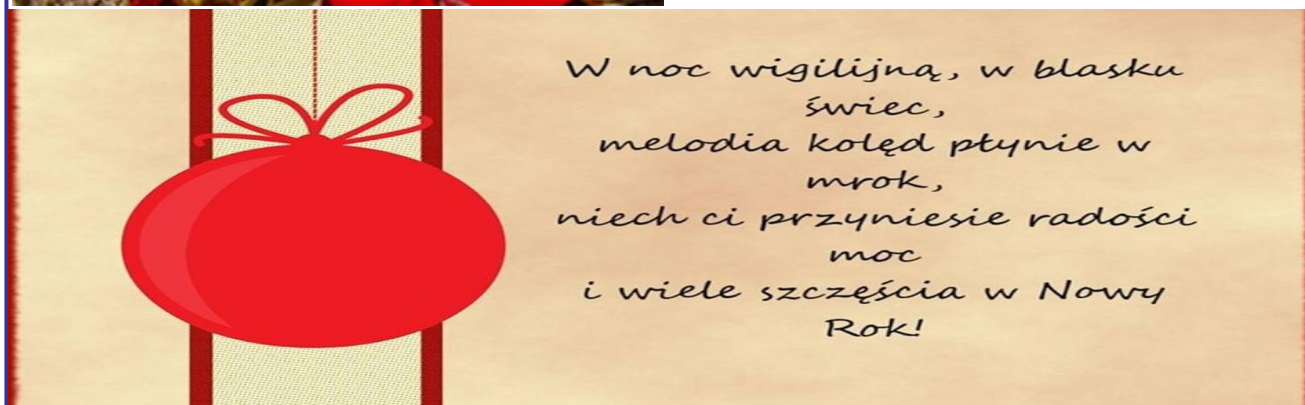 W noc wigilijną, w blasku
świec,
melodia kolęd płynie w
mrok,
niech ci przyniesie radości
moc
i wiele szczęścia w Nowy
Rok!